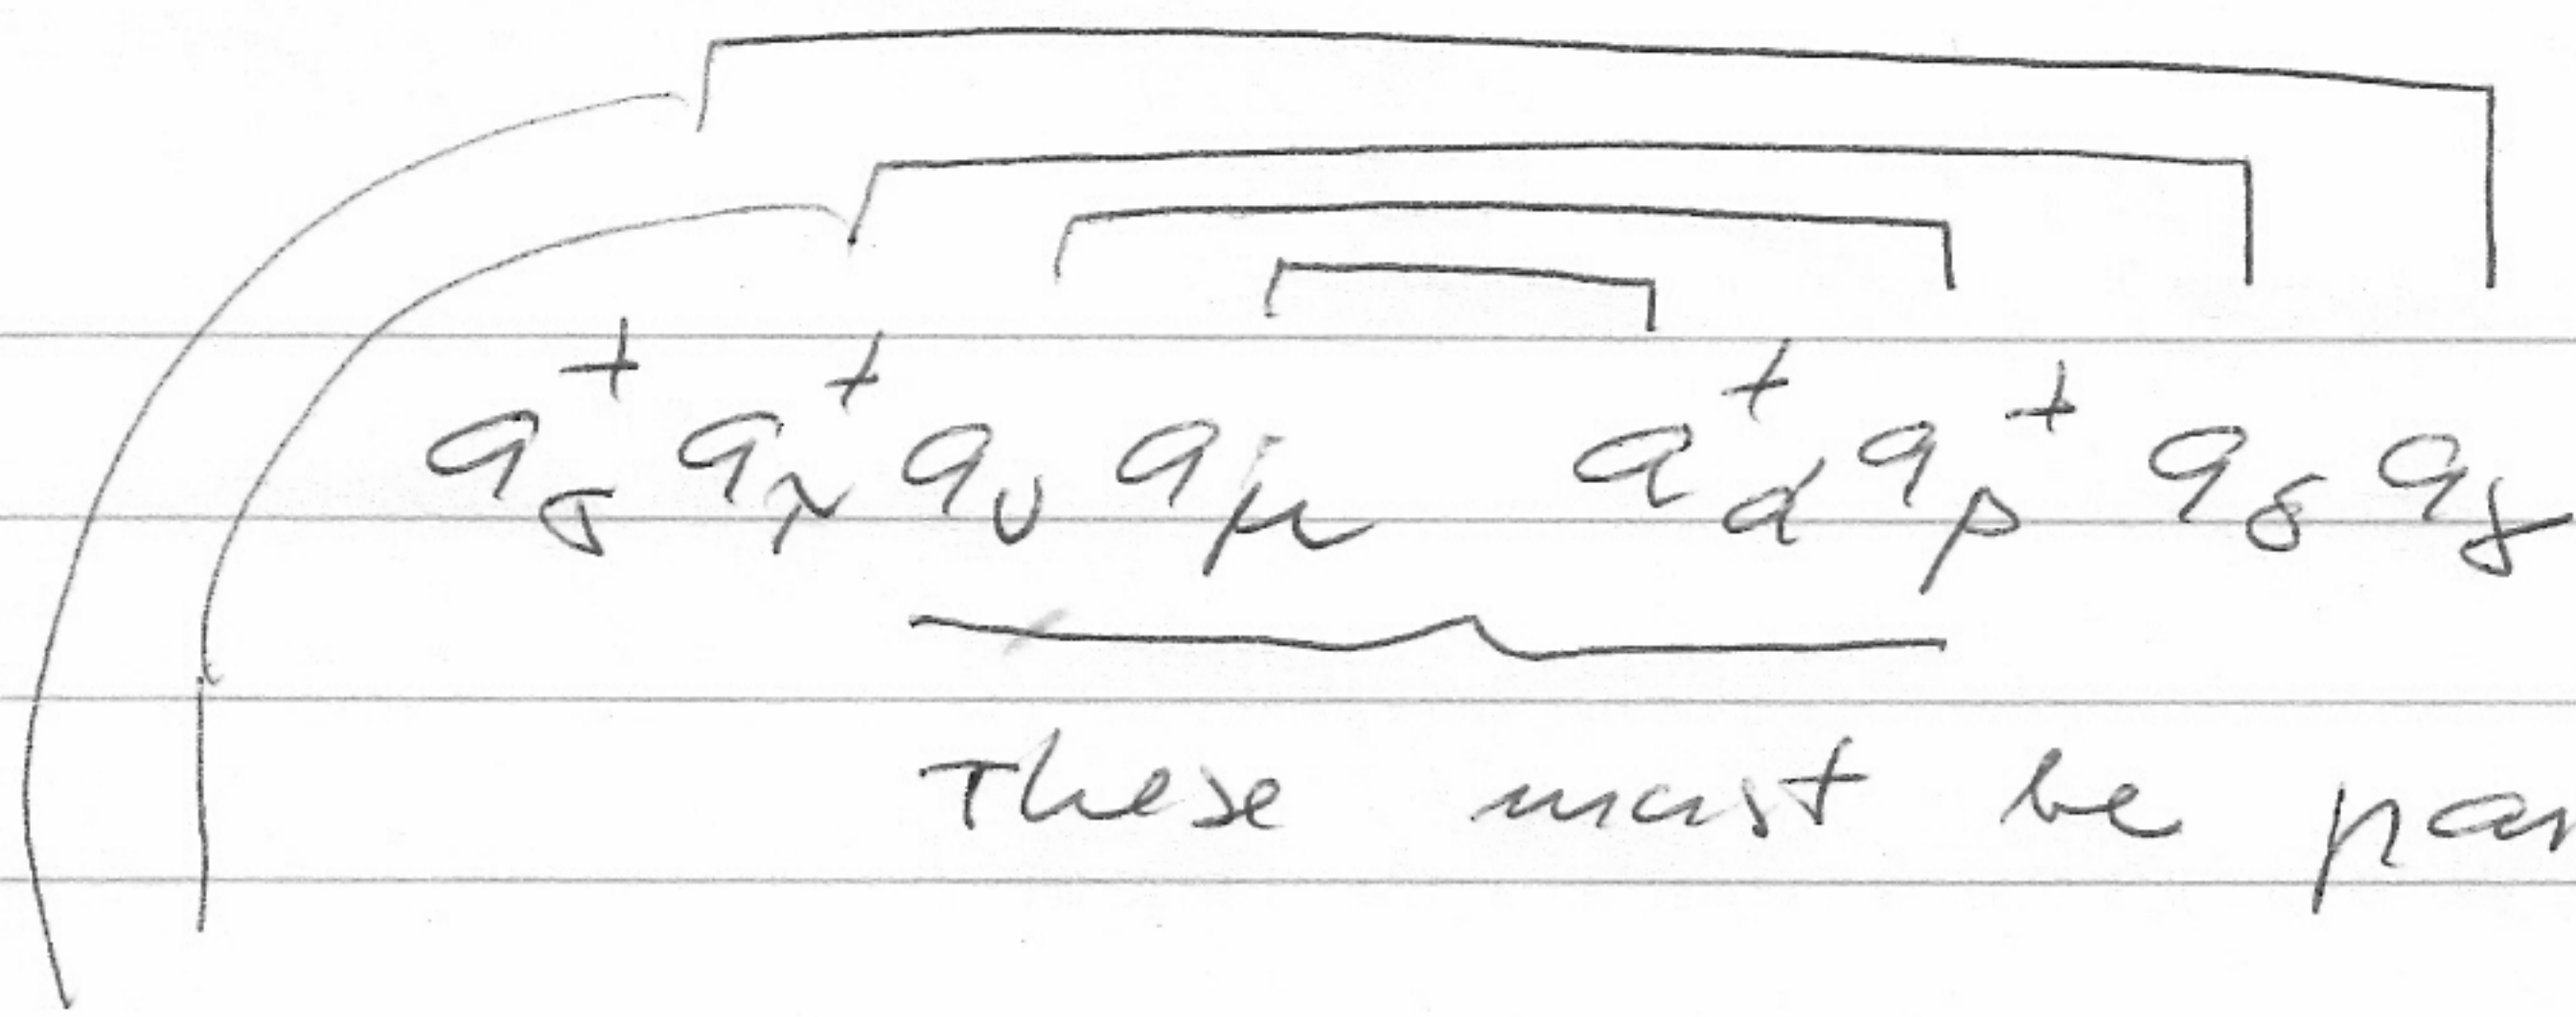 a⁺_σ a⁺_λ a_ν a_μ a⁺_α a⁺_β a_δ a_γ
These must be